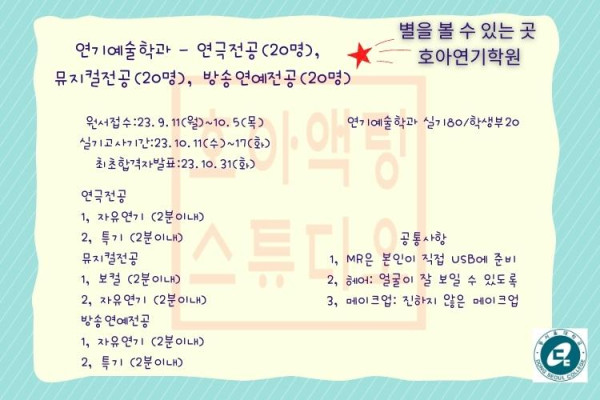 별을 볼 수 있는 곳
호아연기학원
연기예술학과 - 연극전공(20명),
뮤지컬전공(20명), 방송연예전공(20명)
원서접수:23. 9. 11(월)~10. 5(목)
실기고사기간:23. 10. 11(수)~17(화)
최초합격자발표:23. 10. 31(화)
연기예술학과 실기80/학생부20
연극전공
1, 자유연기 (2분이내)
2, 특기 (2분이내)
뮤지컬전공
1, 보컬 (2분이내)
2, 자유연기 (2분이내)
방송연예전공
1, 자유연기 (2분이내)
2, 특기 (2분이내)
공통사항
1, MR은 본인이 직접 USB에 준비
2, 헤어: 얼굴이 잘 보일 수 있도록
3, 메이크업: 진하지 않은 메이크업
호아액팅
스튜디오
DONG SEOUL COLLEGE